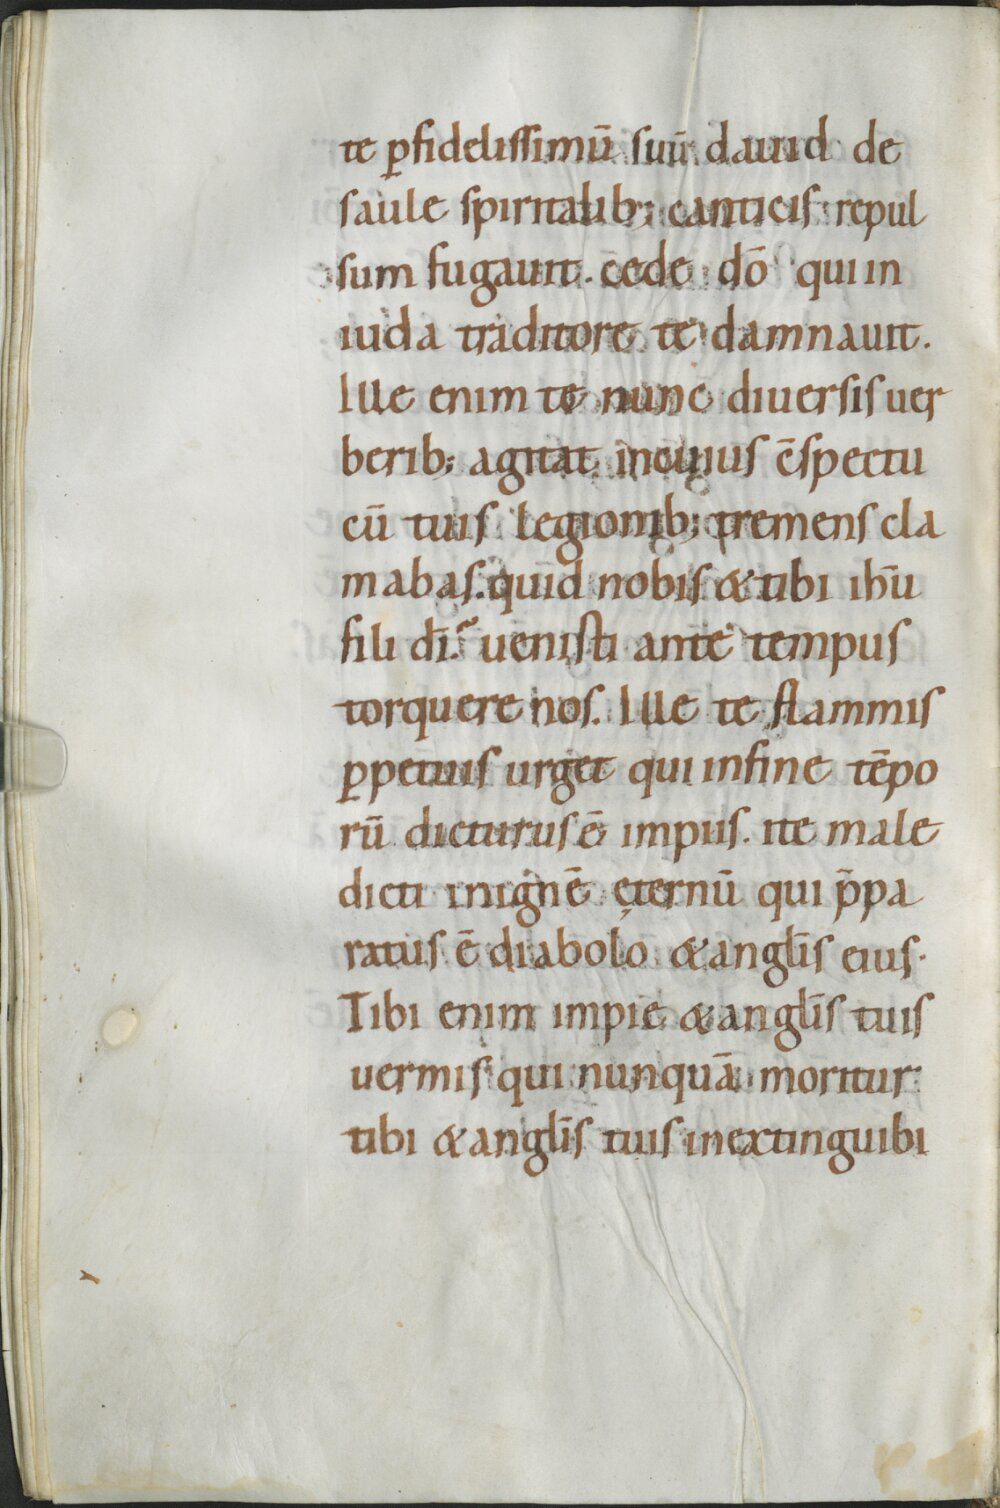 te ꝑfidelissimū suū dauid de
saule spiritalib; canticis repul
sum fugauit. cede dō qui in
iuda traditore te damnauit.
Ille enim te nunc diuersis uer
berib; agitat in cuius c̄spectu
cū tuis legionib; tremens cla
mabas. quid nobis & tibi ihū
fili dī? uenisti ante tempus
torquere nos. Ille te flammis
ꝑpetuis urget qui in fine tēpo
rū dicturus ē impiis. ite male
dicti in ignē ęternū qui p̄pa
ratus ē diabolo & angl̄is eius.
Tibi enim impie & angl̄is tuis
uermis qui nunquā morıtur
tibi & angl̄is tuis inextinguibi